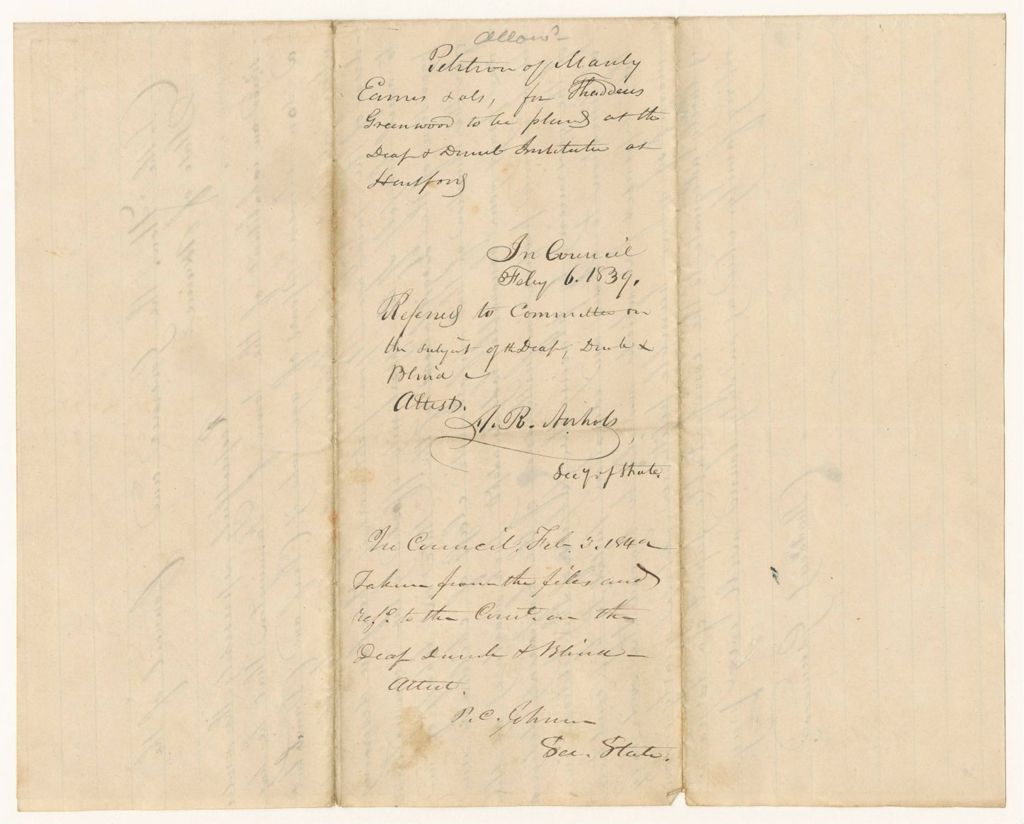 Allowd
Petition of Manly
Eames & als, for Thaddeus
Greenwood to be placed at the
Deaf & Dumb Institute at
Hartford
In Council
Feby 6. 1839.
Referred to Committee on
the subject of th Deaf, Dumb &
Blind
Attest,
A. R. Nichols,
Secy of State.
In Council, Feb. 3. 1840
Taken from the files and
refd. to the Comt. on the
Deaf Dumb & Blind—
Attest.
P. C. Johnson
Sec. State.